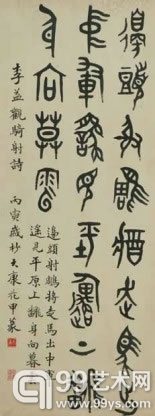 邊頭射雕將走馬出
中軍遠見平原上翻
身向莫雲
邊頭射鵰將走馬出中軍
遠見平原上翻身向暮雲
李益觀騎射詩
丙寅歲杪大康
99艺术网
99ys.com